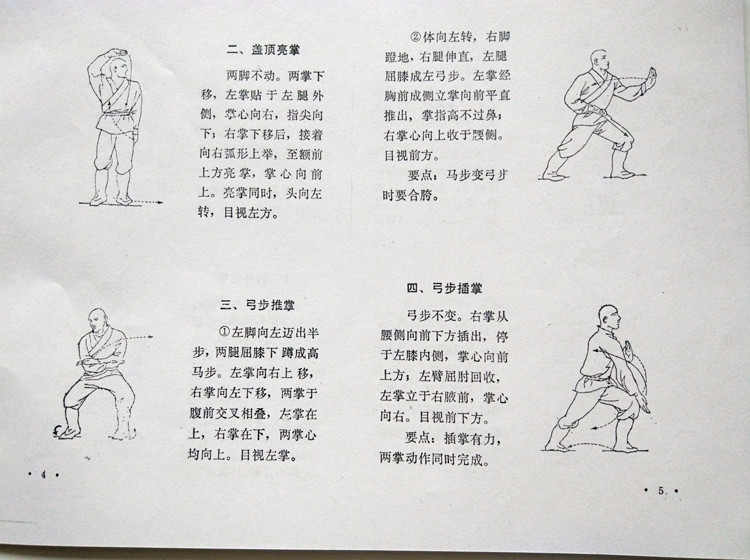 二、盖顶亮掌
两脚不动。两掌下
移，左掌贴于左腿外
侧，掌心向右，指尖向
下；右掌下移后，接着
向右弧形上举，至额前
上方亮掌，掌心向前
上。亮掌同时，头向左
转，目视左方。
三、弓步推掌
①左脚向左迈出半
步，两腿屈膝下蹲成高
马步。左掌向右上移，
右掌向左下移，两掌于
腹前交叉相叠，左掌在
上，右掌在下，两掌心
均向上。目视左掌。
· 4 ·
②体向左转，右脚
蹬地，右腿伸直，左腿
屈膝成左弓步。左掌经
胸前成侧立掌向前平直
推出，掌指高不过鼻；
右掌心向上收于腰侧。
目视前方。
要点：马步变弓步
时要合胯。
四、弓步插掌
弓步不变。右掌从
腰侧向前下方插出，停
于左膝内侧，掌心向前
上方；左臂屈肘回收，
左掌立于右腋前，掌心
向右。目视前下方。
要点：插掌有力，
两掌动作同时完成。
· 5 ·